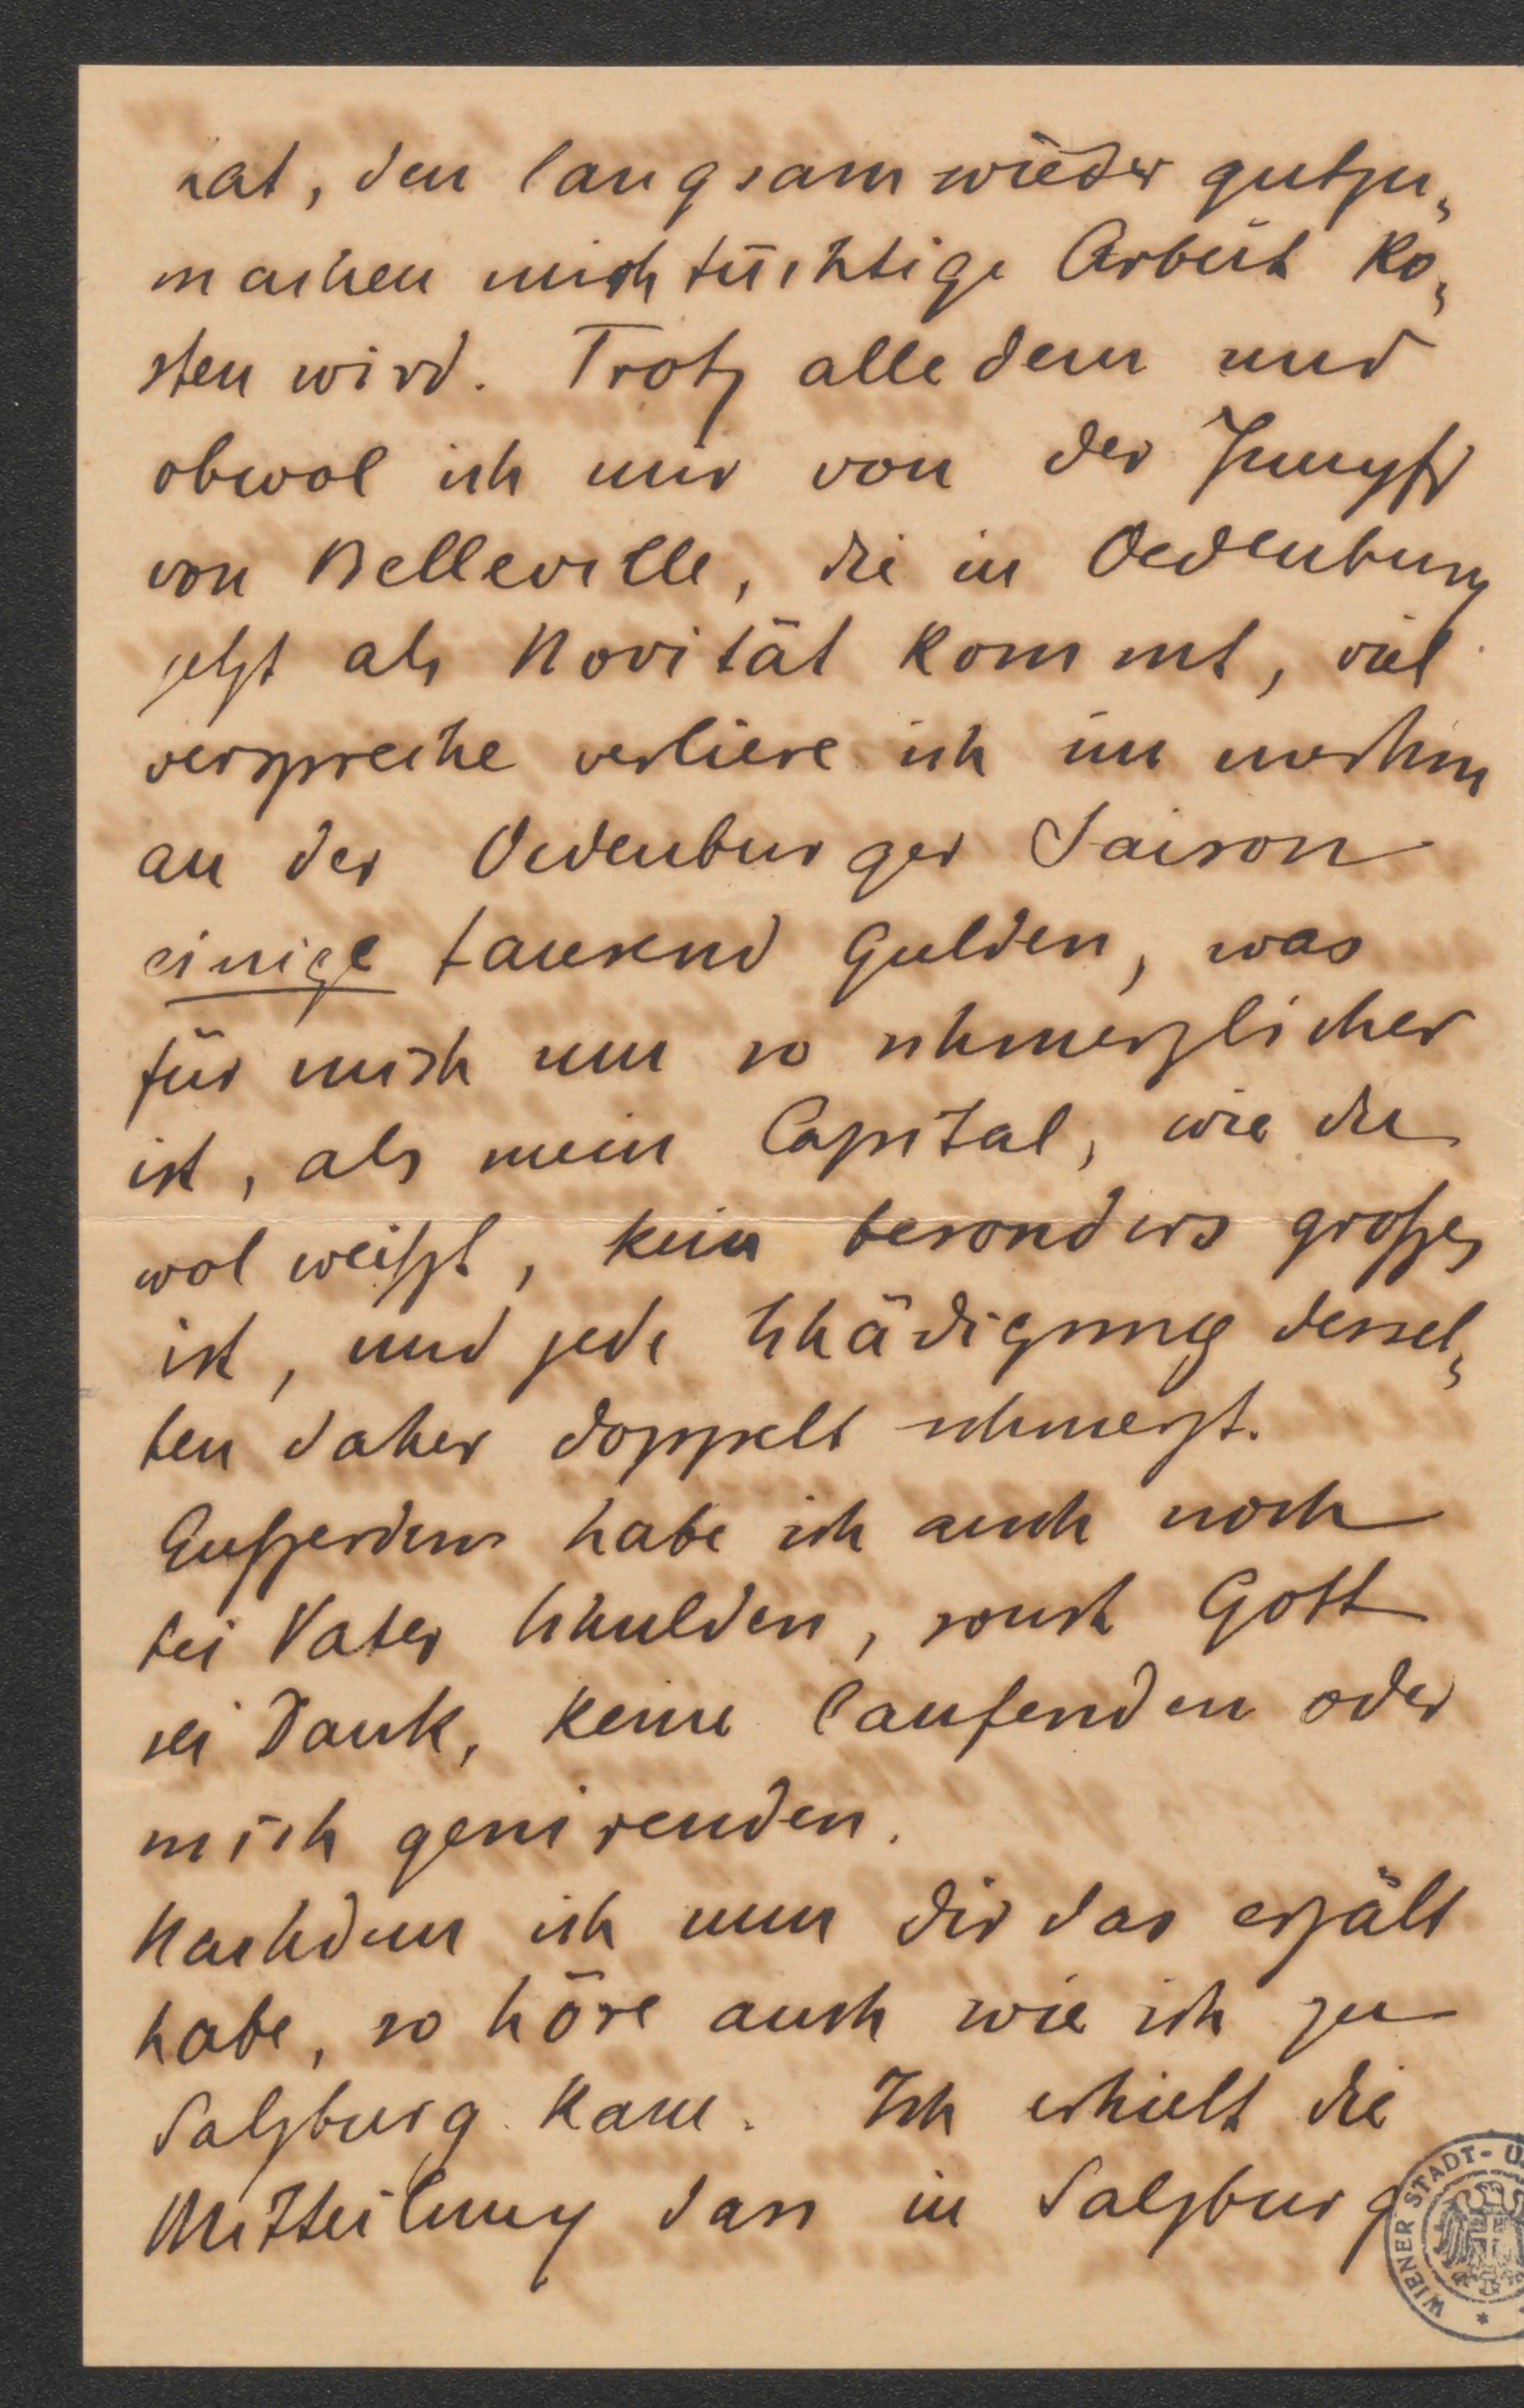 hat, den langsam wieder gutzu„
machen mich tüchtige Arbeit ko„
sten wird. Trotz alledem und
obwol ich mir von der Jungfr
von Belleville, die in Oedenburg
jetzt als Novität kommt, viel
verspreche verliere ich im
an der Oedenburger Saison
einige tausend Gulden, was
für mich um so schmerzlicher
ist, als mein Capital, wie du
wol weißt, kein besonders großes
ist, und jede Schädigung dessel„
ben daher doppelt schmerzt.
Außerdem habe ich auch noch
bei Vater Schulden, sonst Gott
sei Dank, keine laufenden oder
mich genirenden.
Nachdem ich nun dir das erzält
habe, so höre auch wie ich zu
Salzburg kam. Ich erhielt die
Mitteilung dass in Salzburg
WIENER STADT-